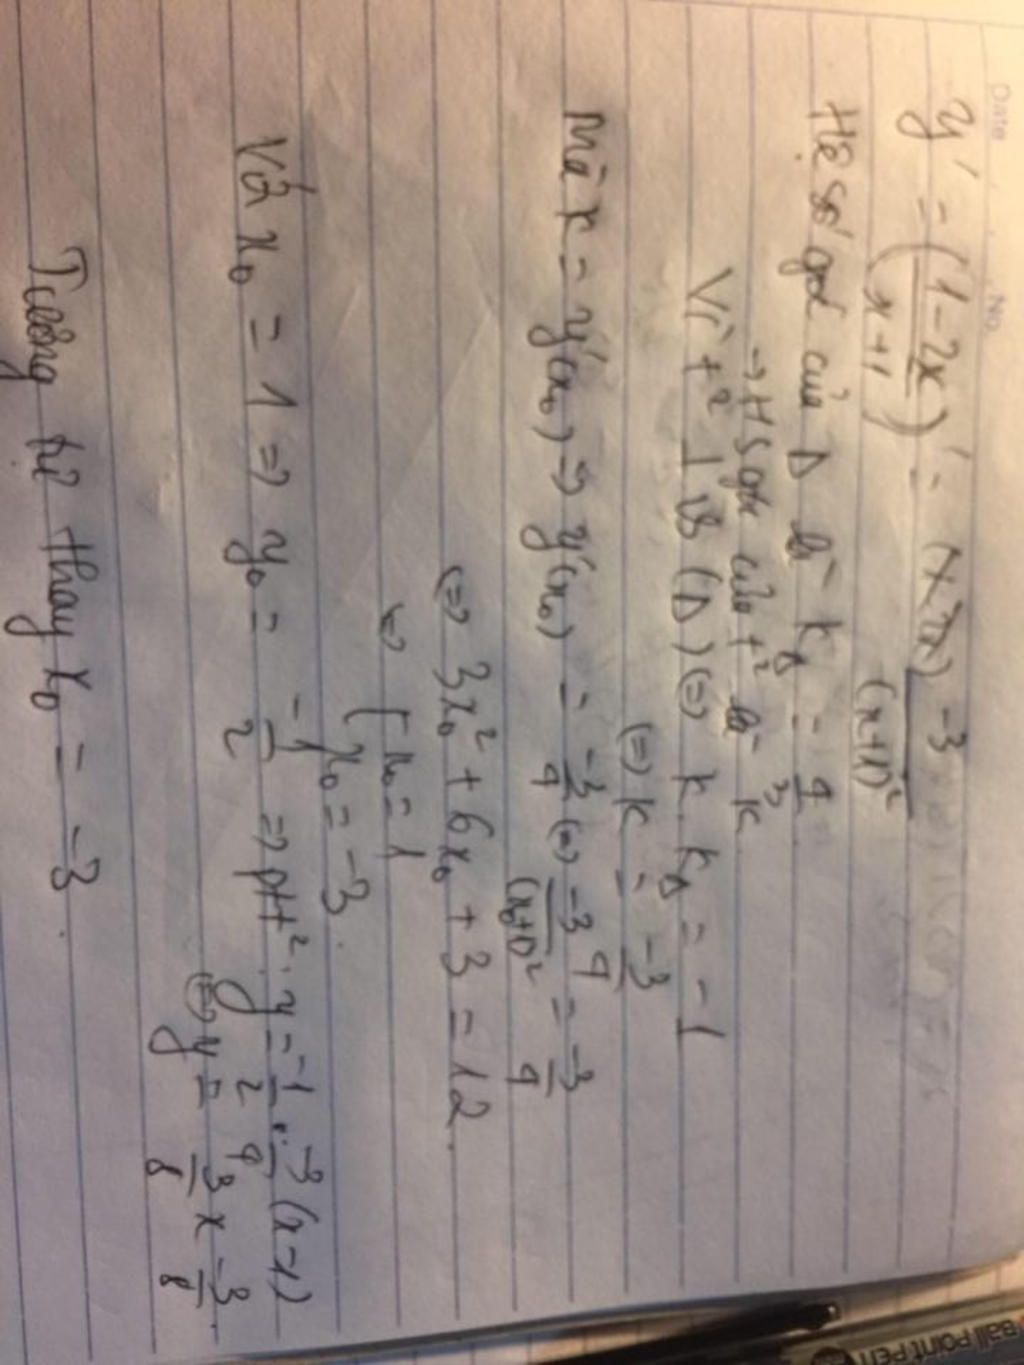 Date No.
y' = (1-2x / x+1)' = -3 / (x+1)²
Hệ số góc của Δ là k_Δ = 4/3
→ HS góc của t² là k
Vì t² ⊥ vs (Δ) ⇔ k. k_Δ = -1
⇔ k = -3/4
Mà k = y'(x₀) ⇒ y'(x₀) = -3/4 ⇔ -3/(x₀+1)² = -3/4
⇔ 3x₀² + 6x₀ + 3 = 12.
⇔ [ x₀ = 1
x₀ = -3.
Với x₀ = 1 ⇒ y₀ = -1/2 ⇒ ptt². y = -1/2 . -3/4 (x-1)
⇔ y = 3/8 x - 3/8.
Tương tự thay x₀ = -3.
BALL POINT PEN